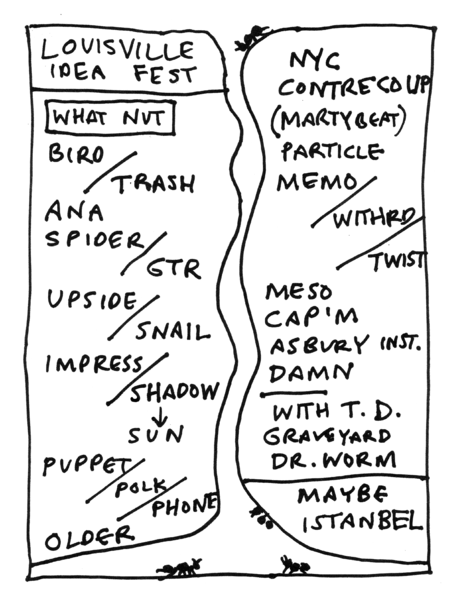 LOUISVILLE
IDEA FEST
WHAT NUT
BIRD
TRASH
ANA
SPIDER
GTR
UPSIDE
SNAIL
IMPRESS
SHADOW
SUN
PUPPET
POLK
PHONE
OLDER
NYC
CONTRECOUP
(MARTYBEAT)
PARTICLE
MEMO
WITHRD
TWIST
MESO
CAP'M
ASBURY INST.
DAMN
WITH T. D.
GRAVEYARD
DR. WORM
MAYBE
ISTANBEL